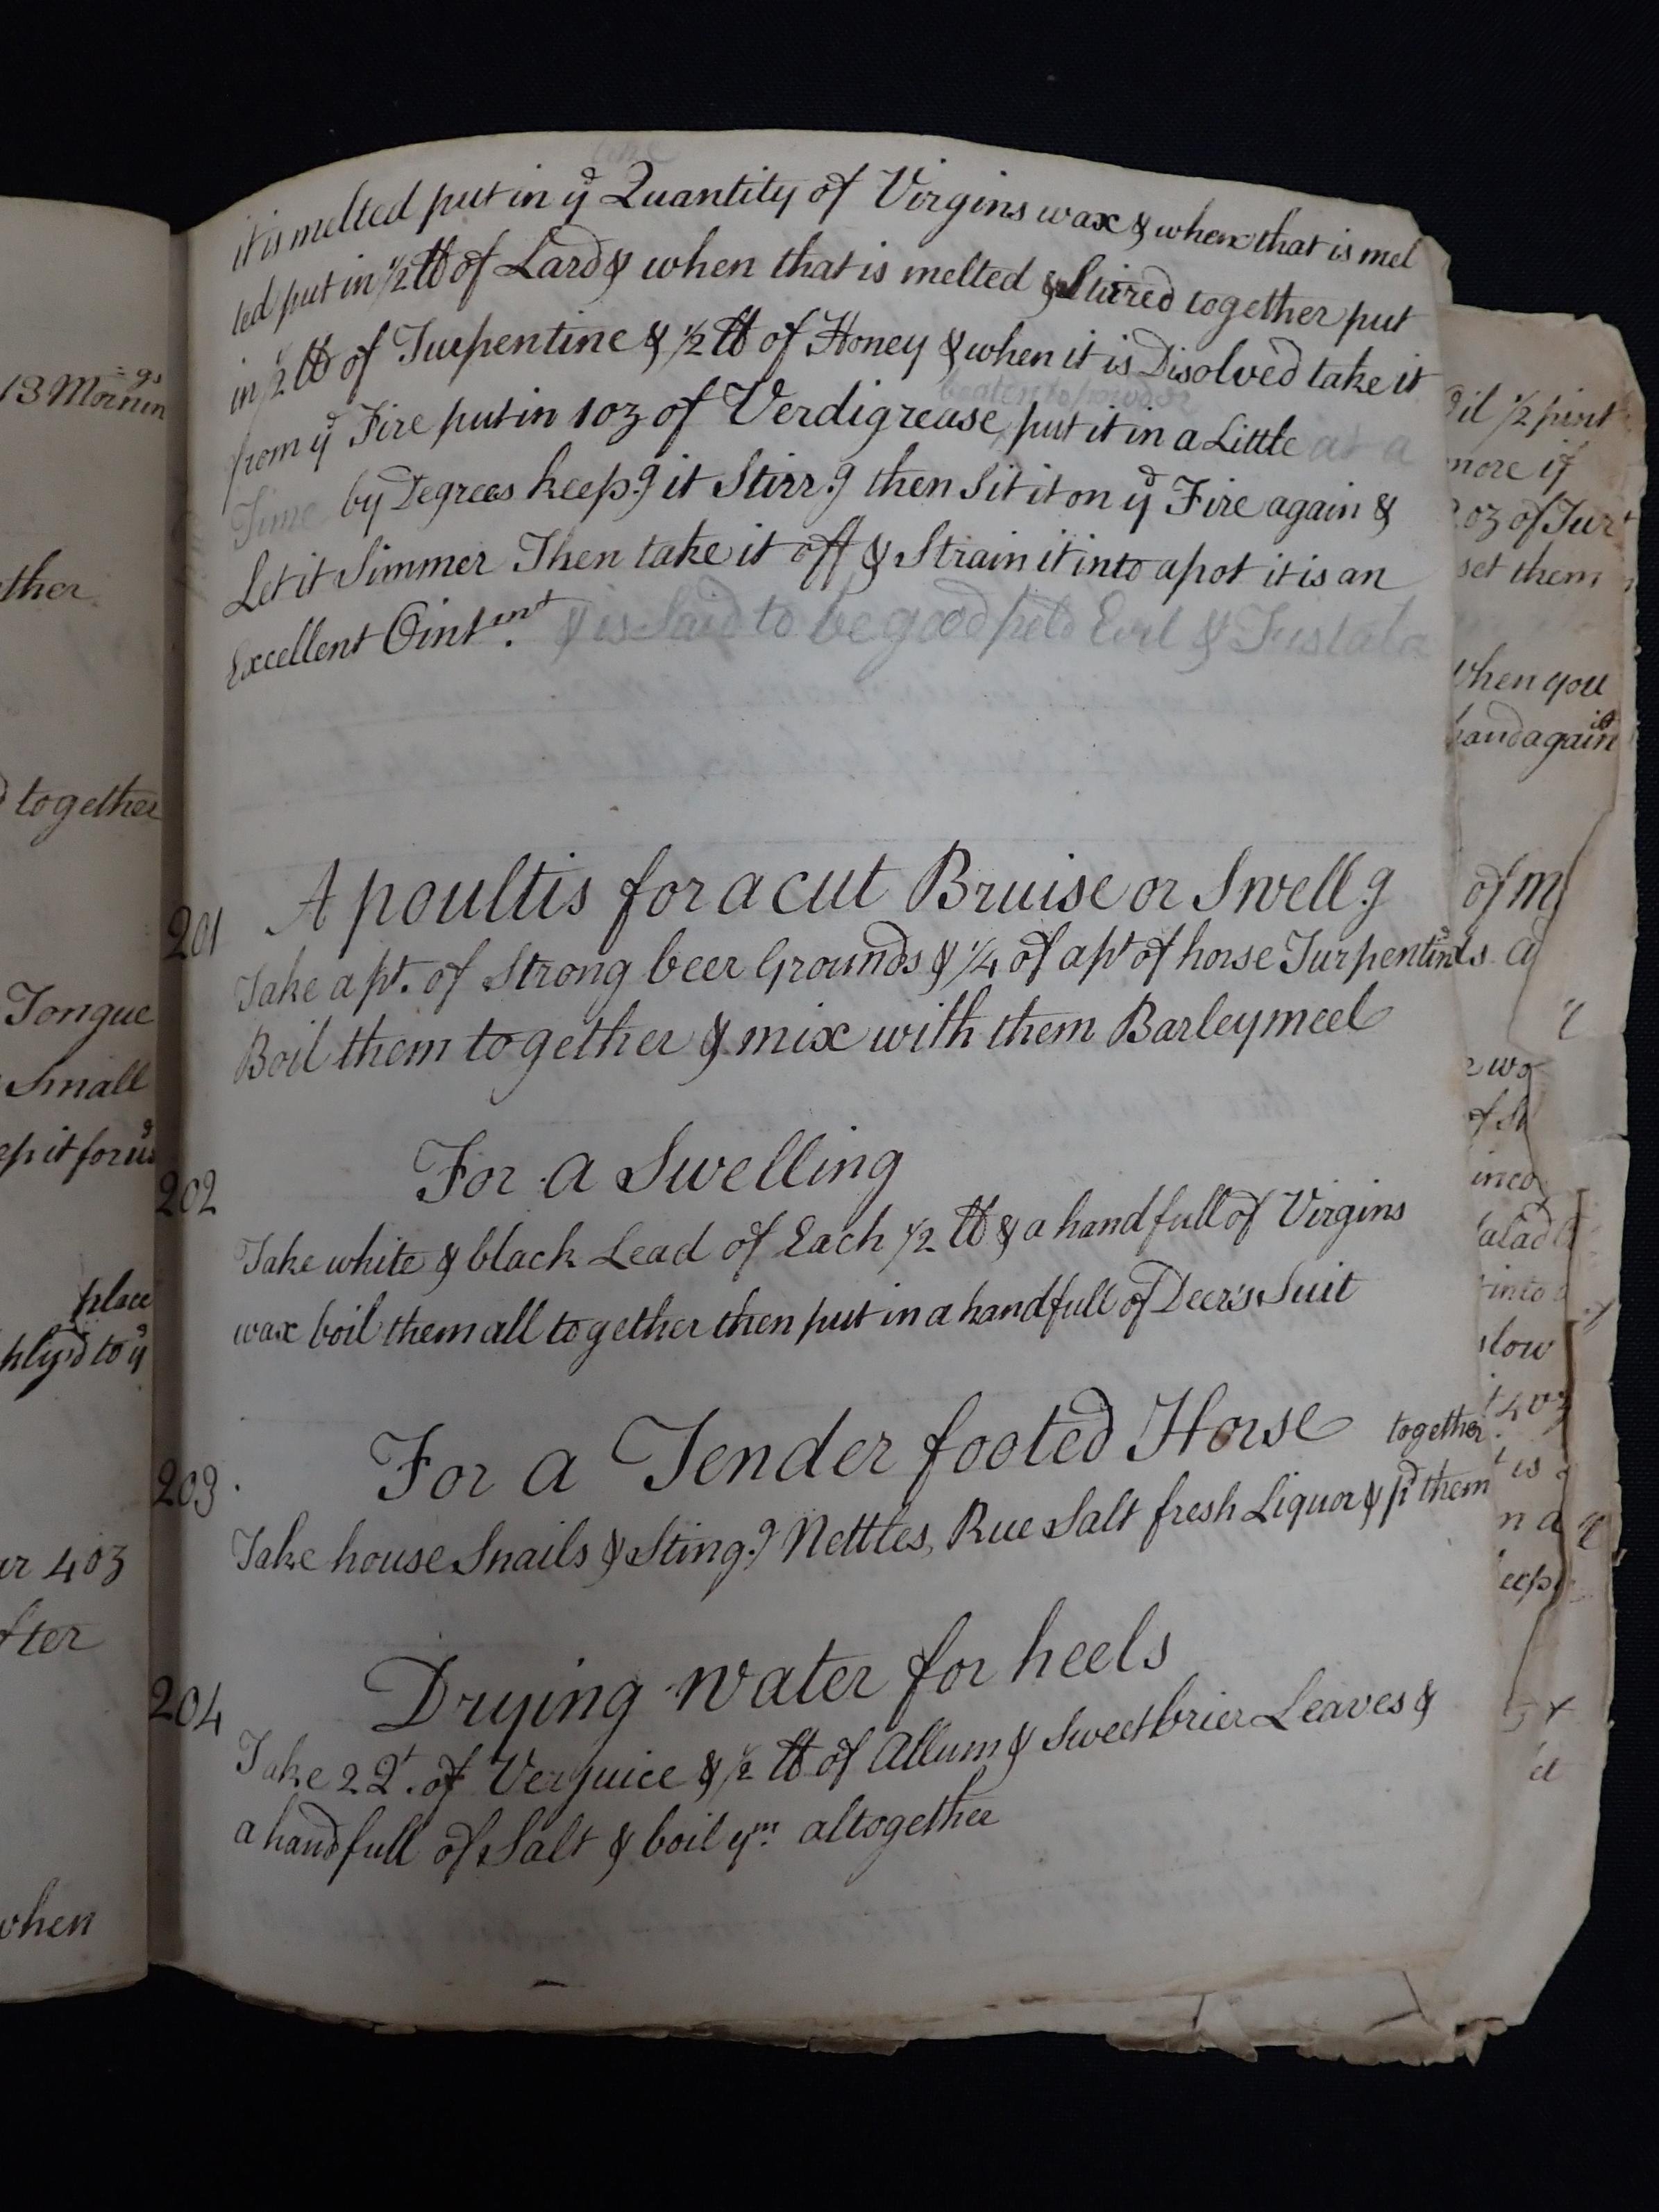 13 Mornings
ther
together
Tongue
Small
ep it for use
place
plyd to yᵉ
4 oz
fter
when
like
it is melted put in yᵉ Quantity of Virgins wax & when that is mel
ted put in ½ ℔ of Lard & when that is melted & Stired together put
in ½ ℔ of Turpentine & ½ ℔ of Honey & when it is Disolved take it
beaten to powder
from yᵉ Fire put in 1oz of Verdigrease, put it in a Little at a
Time by Degrees keep.g it Stirr.g then Sit it on yᵉ Fire again &
Let it Simmer Then take it off & Strain it into a pot it is an
Excellent Ointmnt. & is Said to be good Evil & Fistula
201 A poultis for a cut Bruise or Swell.g
Take a pt. of Strong beer Grounds & ¼ of a pt of horse Turpentine
Boil them together & mix with them Barley meel
202 For a Swelling
Take white & black Lead of Each ½ ℔ & a handfull of Virgins
wax boil them all together then put in a handfull of Deers Suit
203 For a Tender footed Horse
together.
Take house Snails & Sting.g Nettles, Rue Salt fresh Liquor & pd them
204 Drying water for heels
Take 2 Qt. of Verjuice & ½ ℔ of Allum & Sweetbrier Leaves &
a handfull of Salt & boil ym. altogether
½ pint
more if
oz of Tur
set them
when you
hand again
of m
into